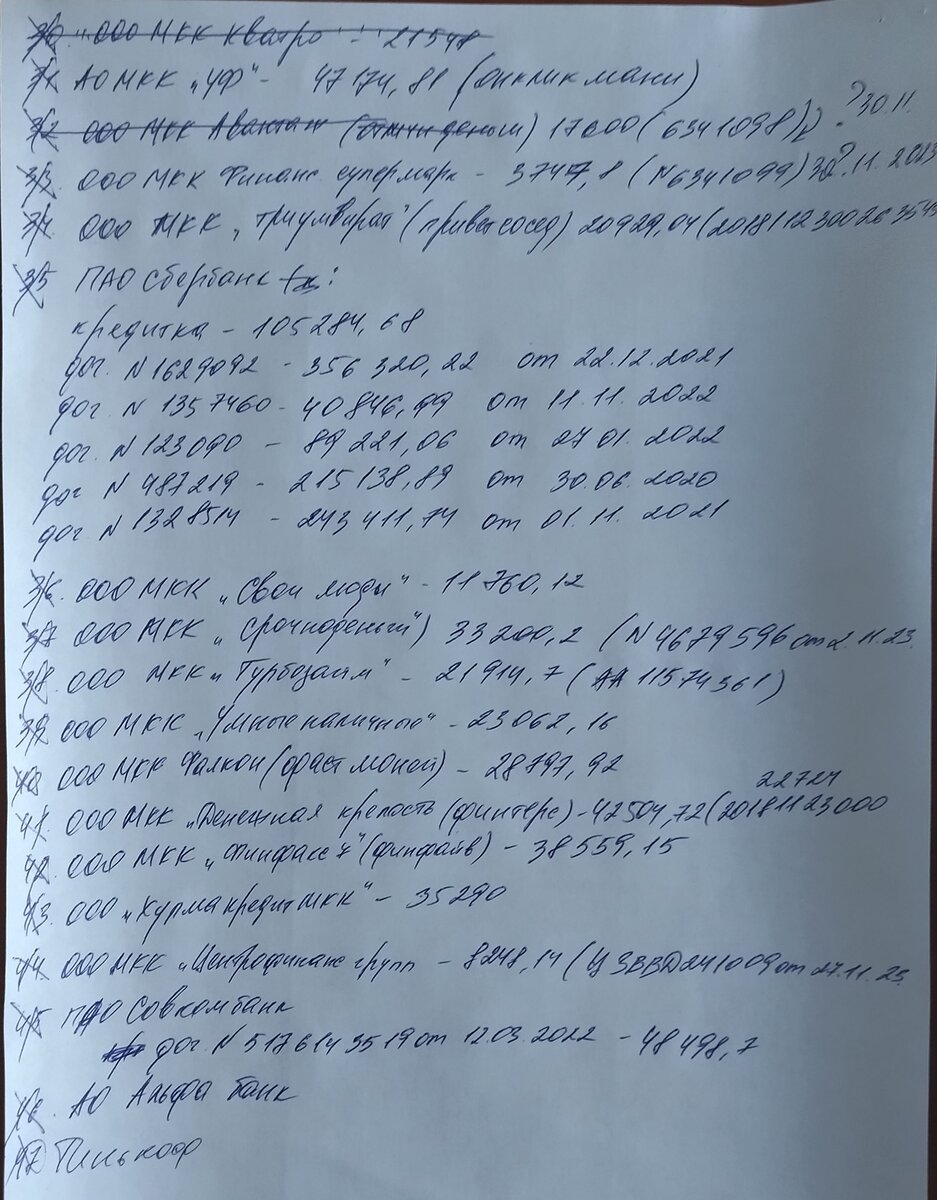 30 "ООО МКК Кватро" - 21548
31 АО МКК "УФ" - 47174,81 (онкликмани)
32 ООО МКК Авантаж (отличн деньги) 17000 (6341098) ? 30.11.
33. ООО МКК Финанс супермарк - 3747,8 (N6341099) 30.11.2023
34 ООО МКК "Триумвират" (привет сосед) 20929,04 (2018112300263545
35 ПАО Сбербанк :
кредитка - 105284,68
дог. N 1629092 - 356 320,22 от 22.12.2021
дог. N 1357460 - 40846,99 от 11.11.2022
дог. N 123090 - 89 221,06 от 27.01.2022
дог N 487219 - 215138,89 от 30.06.2020
дог. N 1328514 - 243 411,74 от 01.11.2021
36. ООО МКК "Свои люди" - 11760,12
37 ООО МКК "Срочноденьги") 33200,2 (N 4679596 от 2.11.23.
38. ООО МКК "Турбозайм" - 21914,7 (АА 11574361)
39 ООО МКК "Умные наличные" - 23062,16
40 ООО МКК Фалкон (фаст моней) - 28797,92
22724
41. ООО МКК "Денежная крепость (финтерс) - 42504,72 (20181123000
42. ООО МКК "Финфасс7" (финфайв) - 38559,15
43. ООО "Хурма кредит мкк" - 35290
44. ООО МКК "Центрофинанс групп - 8248,14 (ЦЗВВD241009 от 27.11.23.
45 ПАО Совкомбанк
дог. N 5176143519 от 12.03.2022 - 48 498,7
46. АО Альфа банк
47 Тинькофф